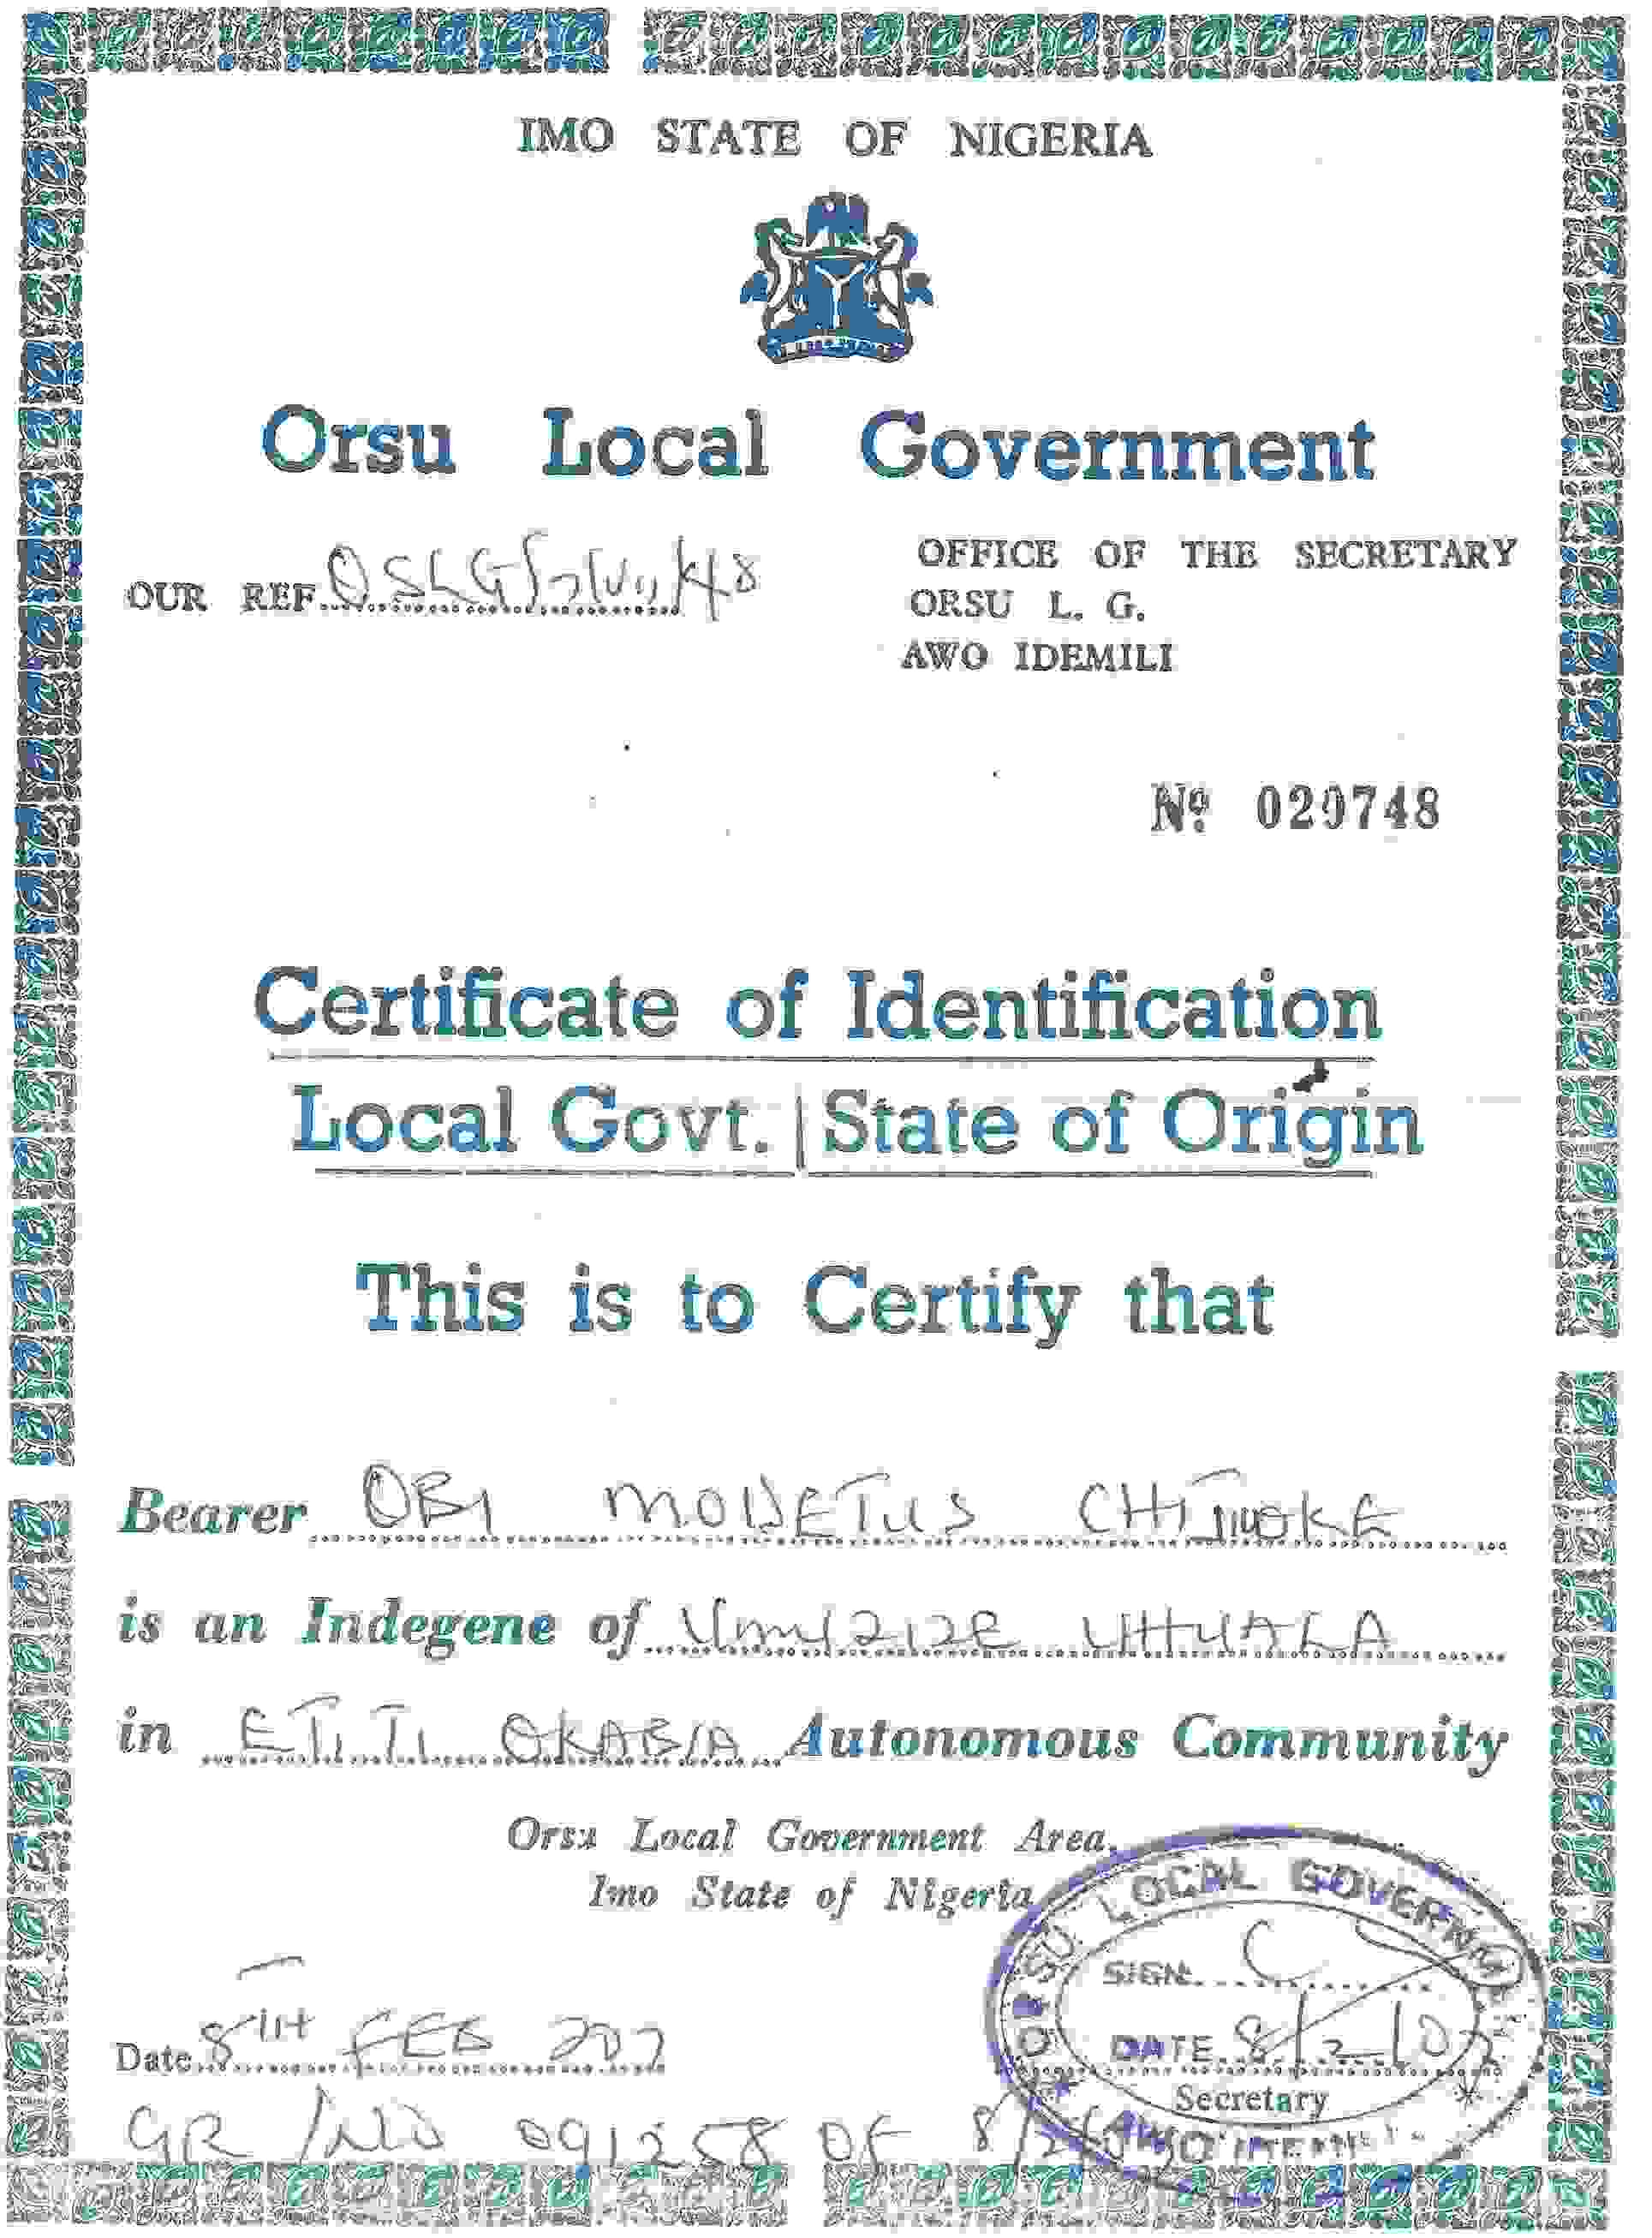 IMO STATE OF NIGERIA
Orsu Local Government
OUR REF
OFFICE OF THE SECRETARY
ORSU L. G.
AWO IDEMILI
Nº 020748
Certificate of Identification
Local Govt. | State of Origin
This is to Certify that
Bearer OBI CHIJIOKE
is an Indegene of UHUALA
in ETITI OKABIA Autonomous Community
Orsu Local Government Area,
Imo State of Nigeria
ORSU LOCAL GOVERNM
SIGN.
Date 8TH FEB
DATE 8/2/07
Secretary
GR/NO 091258 OF